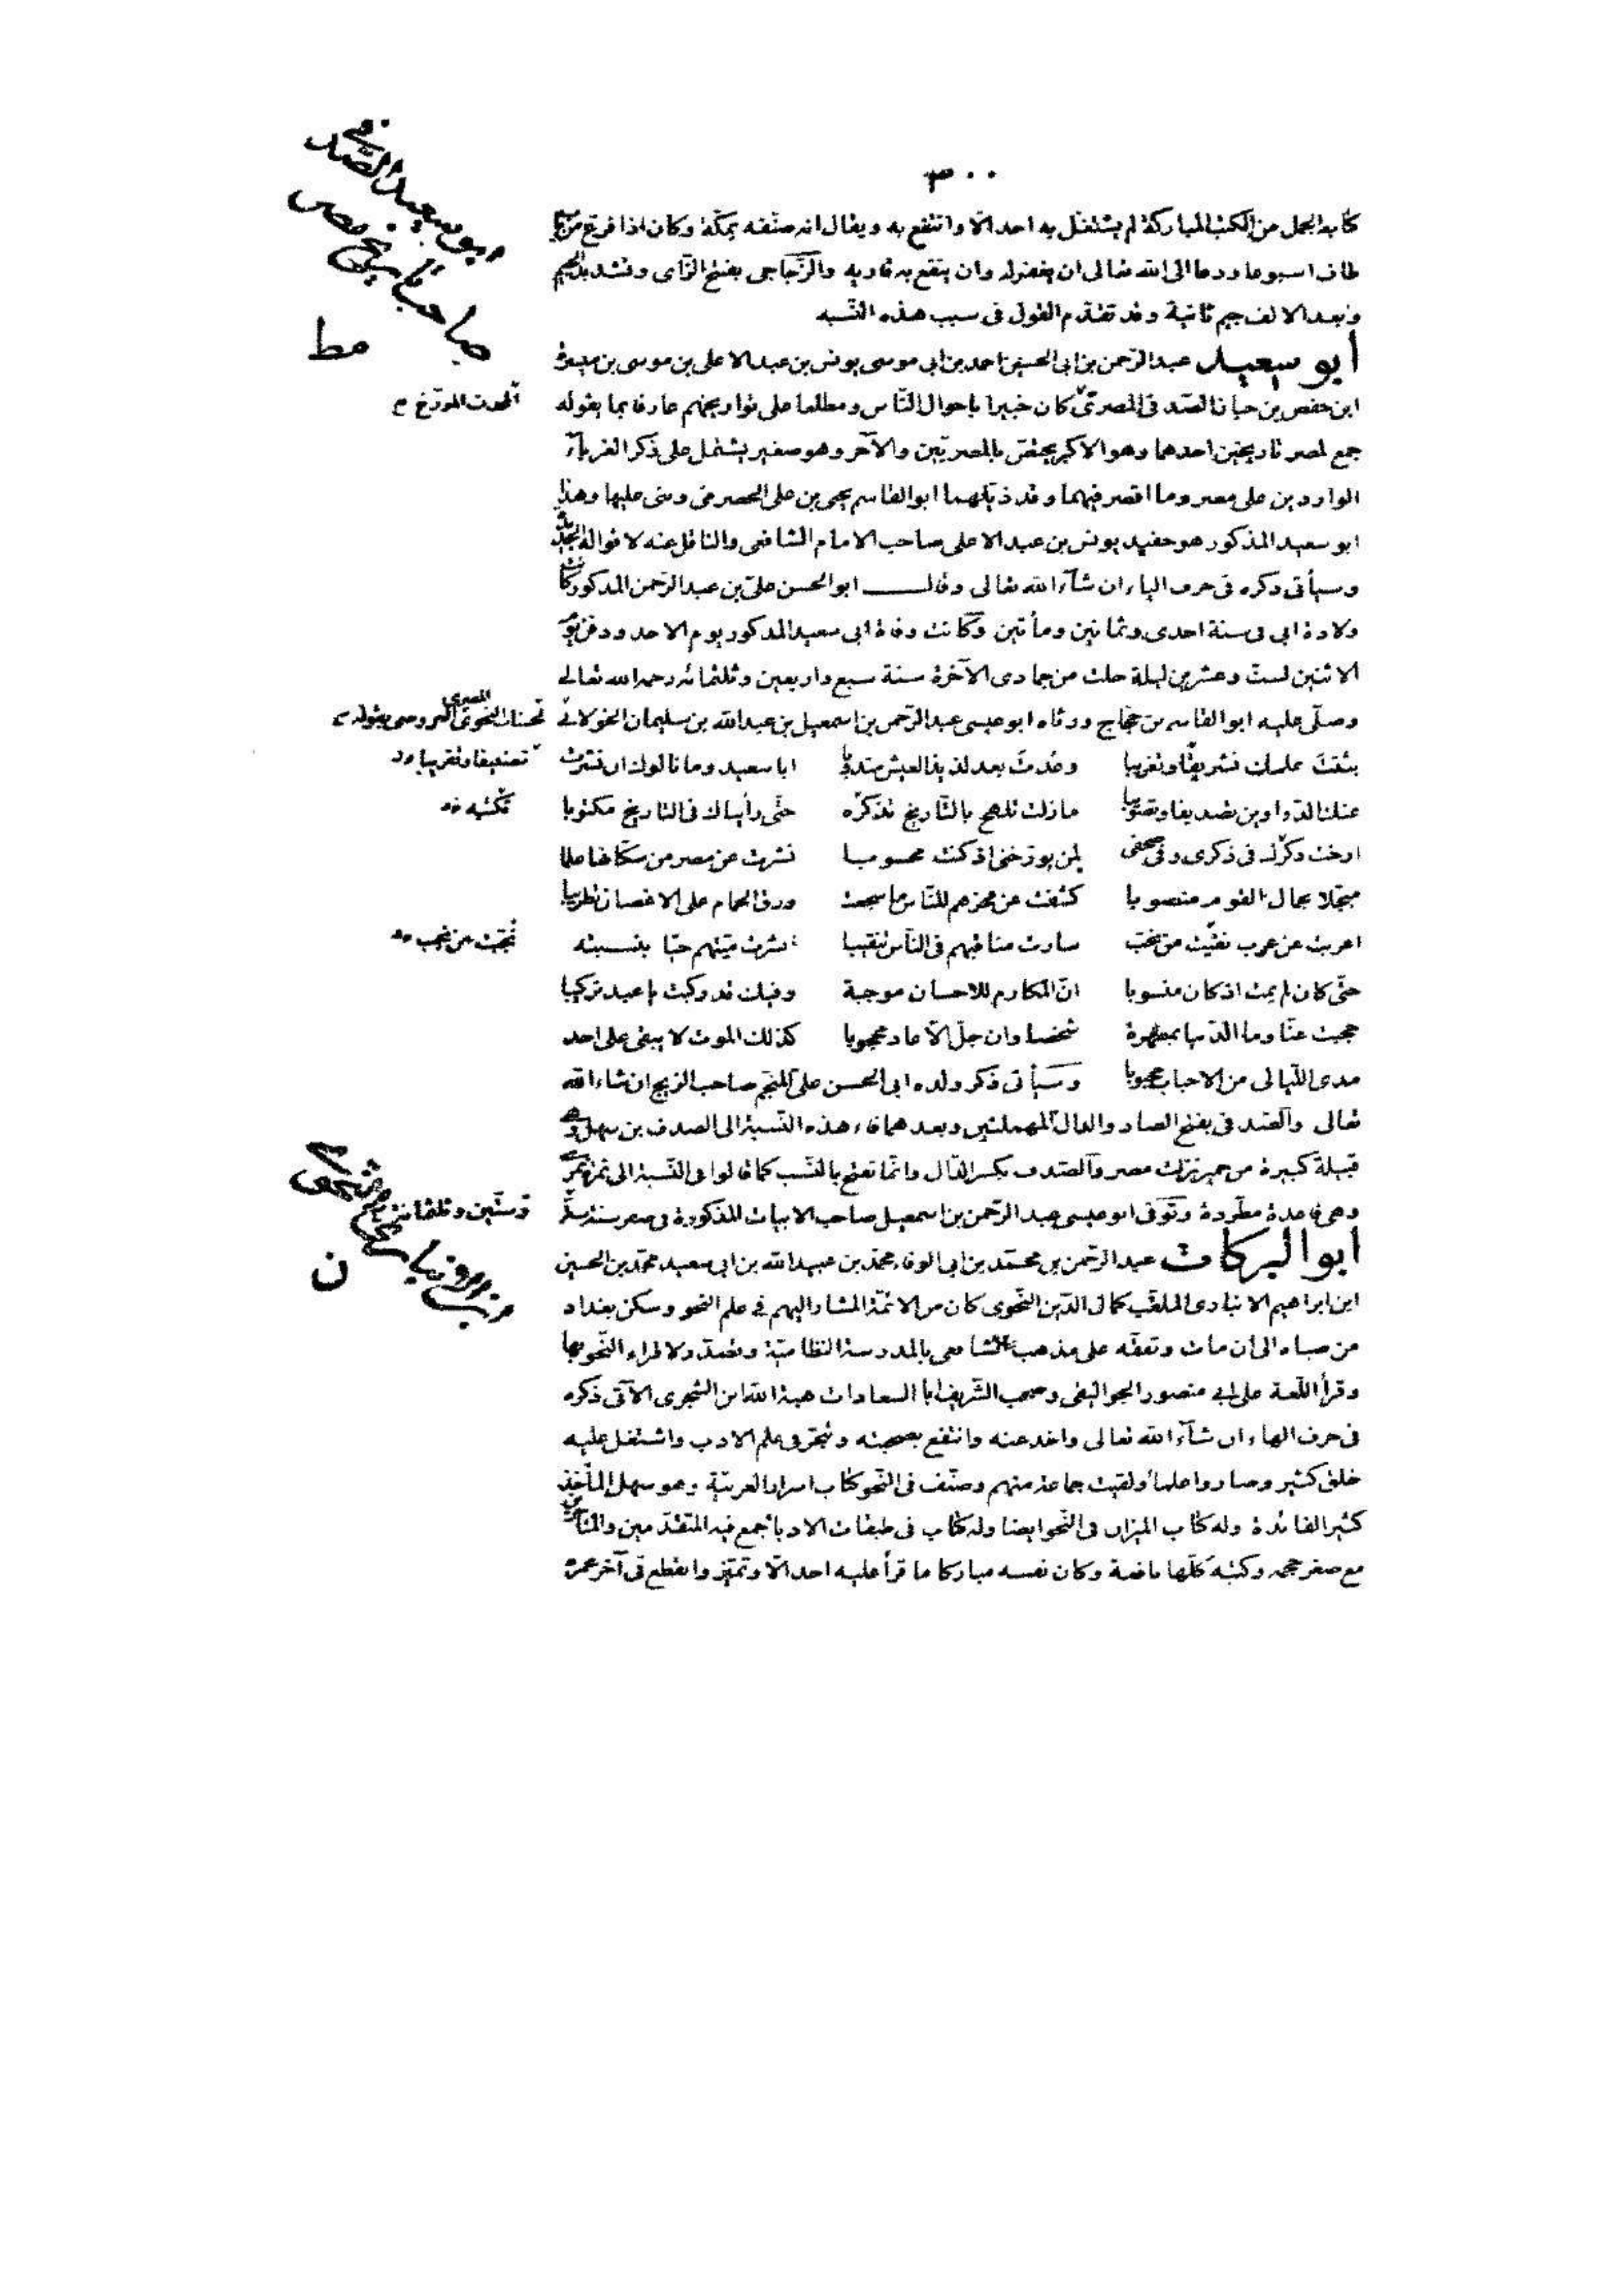 ٣٠٠
كتابه الجمل من الكتب المباركة لم يشتغل به احد الّا وانتفع به ويقال انه صنّفه بمكّة وكان اذا فرغ من باب
طاف اسبوعا ودعا الى الله تعالى ان يغفر له وان ينتفع به قاريه والزّجاجى بفتح الزّاى وتشديد الجيم
وبعد الالف جيم ثانية وقد تقدّم القول فى سبب هذه النّسبه
أبو سعيد عبد الرّحمن بن ابى الحسين احمد بن ابى موسى يونس بن عبد الاعلى بن موسى بن ميسرة
ابن حفص بن حيان الصّدفى المصرىّ كان خبيرا باحوال النّاس ومطلعا على تواريخهم عارفا بما يقوله
جمع لمصر تاريخين احدهما وهو الاكبر يختصّ بالمصريّين والآخر وهو صغير يشتمل على ذكر الغرباء
الواردين على مصر وما اقصر فيهما وقد ذيّلهما ابو القاسم يحيى بن على الحضرمى وبنى عليها وهذا
ابو سعيد المذكور هو حفيد يونس بن عبد الاعلى صاحب الامام الشافعى والناقل عنه لاقواله الجديدة
وسيأتى ذكره فى حرف الياء ان شآء الله تعالى وقال ابو الحسن علىّ بن عبد الرّحمن المذكور كانت
ولادة ابى فى سنة احدى وثمانين ومأتين وكانت وفاة ابى سعيد المذكور يوم الاحد ودفن يوم
الاثنين لستّ وعشرين ليلة خلت من جمادى الآخرة سنة سبع واربعين وثلثمائه رحمه الله تعالى
وصلّى عليه ابو القاسم بن حجّاج ورثاه ابو عيسى عبد الرّحمن بن اسمعيل بن عبد الله بن سليمان الخولانىّ
بثثت علمك تشريقا وتغريبا وعُدتَ بعد لذيذ العيش مندوبا ابا سعيد وما نالوك ان نشرت
عنك الدّواوين تصديقا وتصويبا مازلت تلهج بالتّاريخ تذكره حتّى رأيناك فى التاريخ مكتوبا
ارخت ذكرك فى ذكرى وفى صحفى لمن يورّخنى اذ كنت محسوبا نشرت عن مصر من سكّانها علما
مبجّلا بجمال القوم منصوبا كشفت عن فخرهم للنّاس ما سجعت ورق الحمام على الاغصان تطريبا
اعربت عن عرب نقّبت عن نخب سارت مناقبهم فى النّاس تنقيبا نشرت ميّتهم حيّا بنسبته
حتّى كان لم يمت اذ كان منسوبا انّ المكارم للاحسان موجبة وفيك قد ركبت يا عبد تركيبا
حجبت عنّا وما الدّنيا بمظهرة شخصا وان جلّ الّا عاد محجوبا كذلك الموت لا يبقى على احد
مدى اللّيالى من الاحباب محبوبا وسيأتى ذكر ولده ابى الحسن على المنجّم صاحب الزيج ان شاء الله
تعالى والصّدفى بفتح الصاد والدال المهملتين وبعدهما فاء هذه النّسبة الى الصدف بن سهل وهى
قبيلة كبيرة من حمير نزلت مصر والصّدف بكسر الدّال وانّما تفتح بالنّسب كما قالوا فى النّسبة الى نمرة نمرى
وهى قاعدة مطّردة وتوفّى ابو عيسى عبد الرّحمن بن اسمعيل صاحب الابيات المذكورة فى صفر سنة ستّ
أبو البركات عبد الرّحمن بن محمّد بن ابى الوفاء محمّد بن عبيد الله بن ابى سعيد محمّد بن الحسين
ابن ابراهيم الانبارى الملقّب كمال الدّين النّحوى كان من الائمّة المشار اليهم فى علم النحو وسكن بغداد
من صباه الى ان مات وتفقّه على مذهب الشافعى بالمدرسة النظاميّة وتصدّر لاقراء النّحو بها
وقرأ اللّغة على ابى منصور الجواليقى وصحب الشّريف ابا السعادات هبة الله ابن الشجرى الآتى ذكره
فى حرف الهاء ان شآء الله تعالى واخذ عنه وانتفع بصحبته وتبحّر فى علم الادب واشتغل عليه
خلق كثير وصاروا علماء ولقيت جماعة منهم وصنّف فى النّحو كتاب اسرار العربيّة وهو سهل المأخذ
كثير الفائدة وله كتاب الميزان فى النّحو ايضا وله كتاب فى طبقات الادباء جمع فيه المتقدّمين والمتأخّرين
مع صغر حجمه وكتبه كلّها نافعة وكان نفسه مباركا ما قرأ عليه احد الّا وتميّز وانقطع فى آخر عمره
ابو سعيد الصّدفى
صاحب تاريخ مصر
مط
المحدّث المورّخ
المصرى
النحوى العروضى بقوله
تصنيفا وتقريبا
تكتبه
من نجب
وستّين وثلثمائة
ن